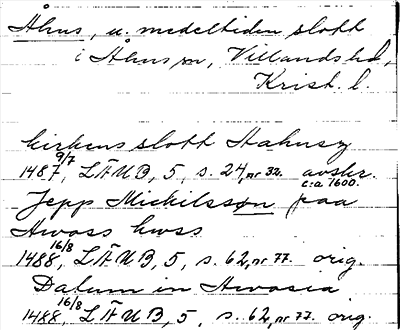 Åhus, u. medeltiden slott
i Åhus sn, Villands hd,
Krist. l.
kirkens slott Aahusz
1487 9/7, LÄUB, 5, s. 24, nr 32. avskr. c:a 1600.
Jepp Mickilsson paa
Awoss hws
1488 16/8, LÄUB, 5, s. 62, nr 77. orig.
Datum in Awosia
1488 16/8, LÄUB, 5, s. 62, nr 77. orig.